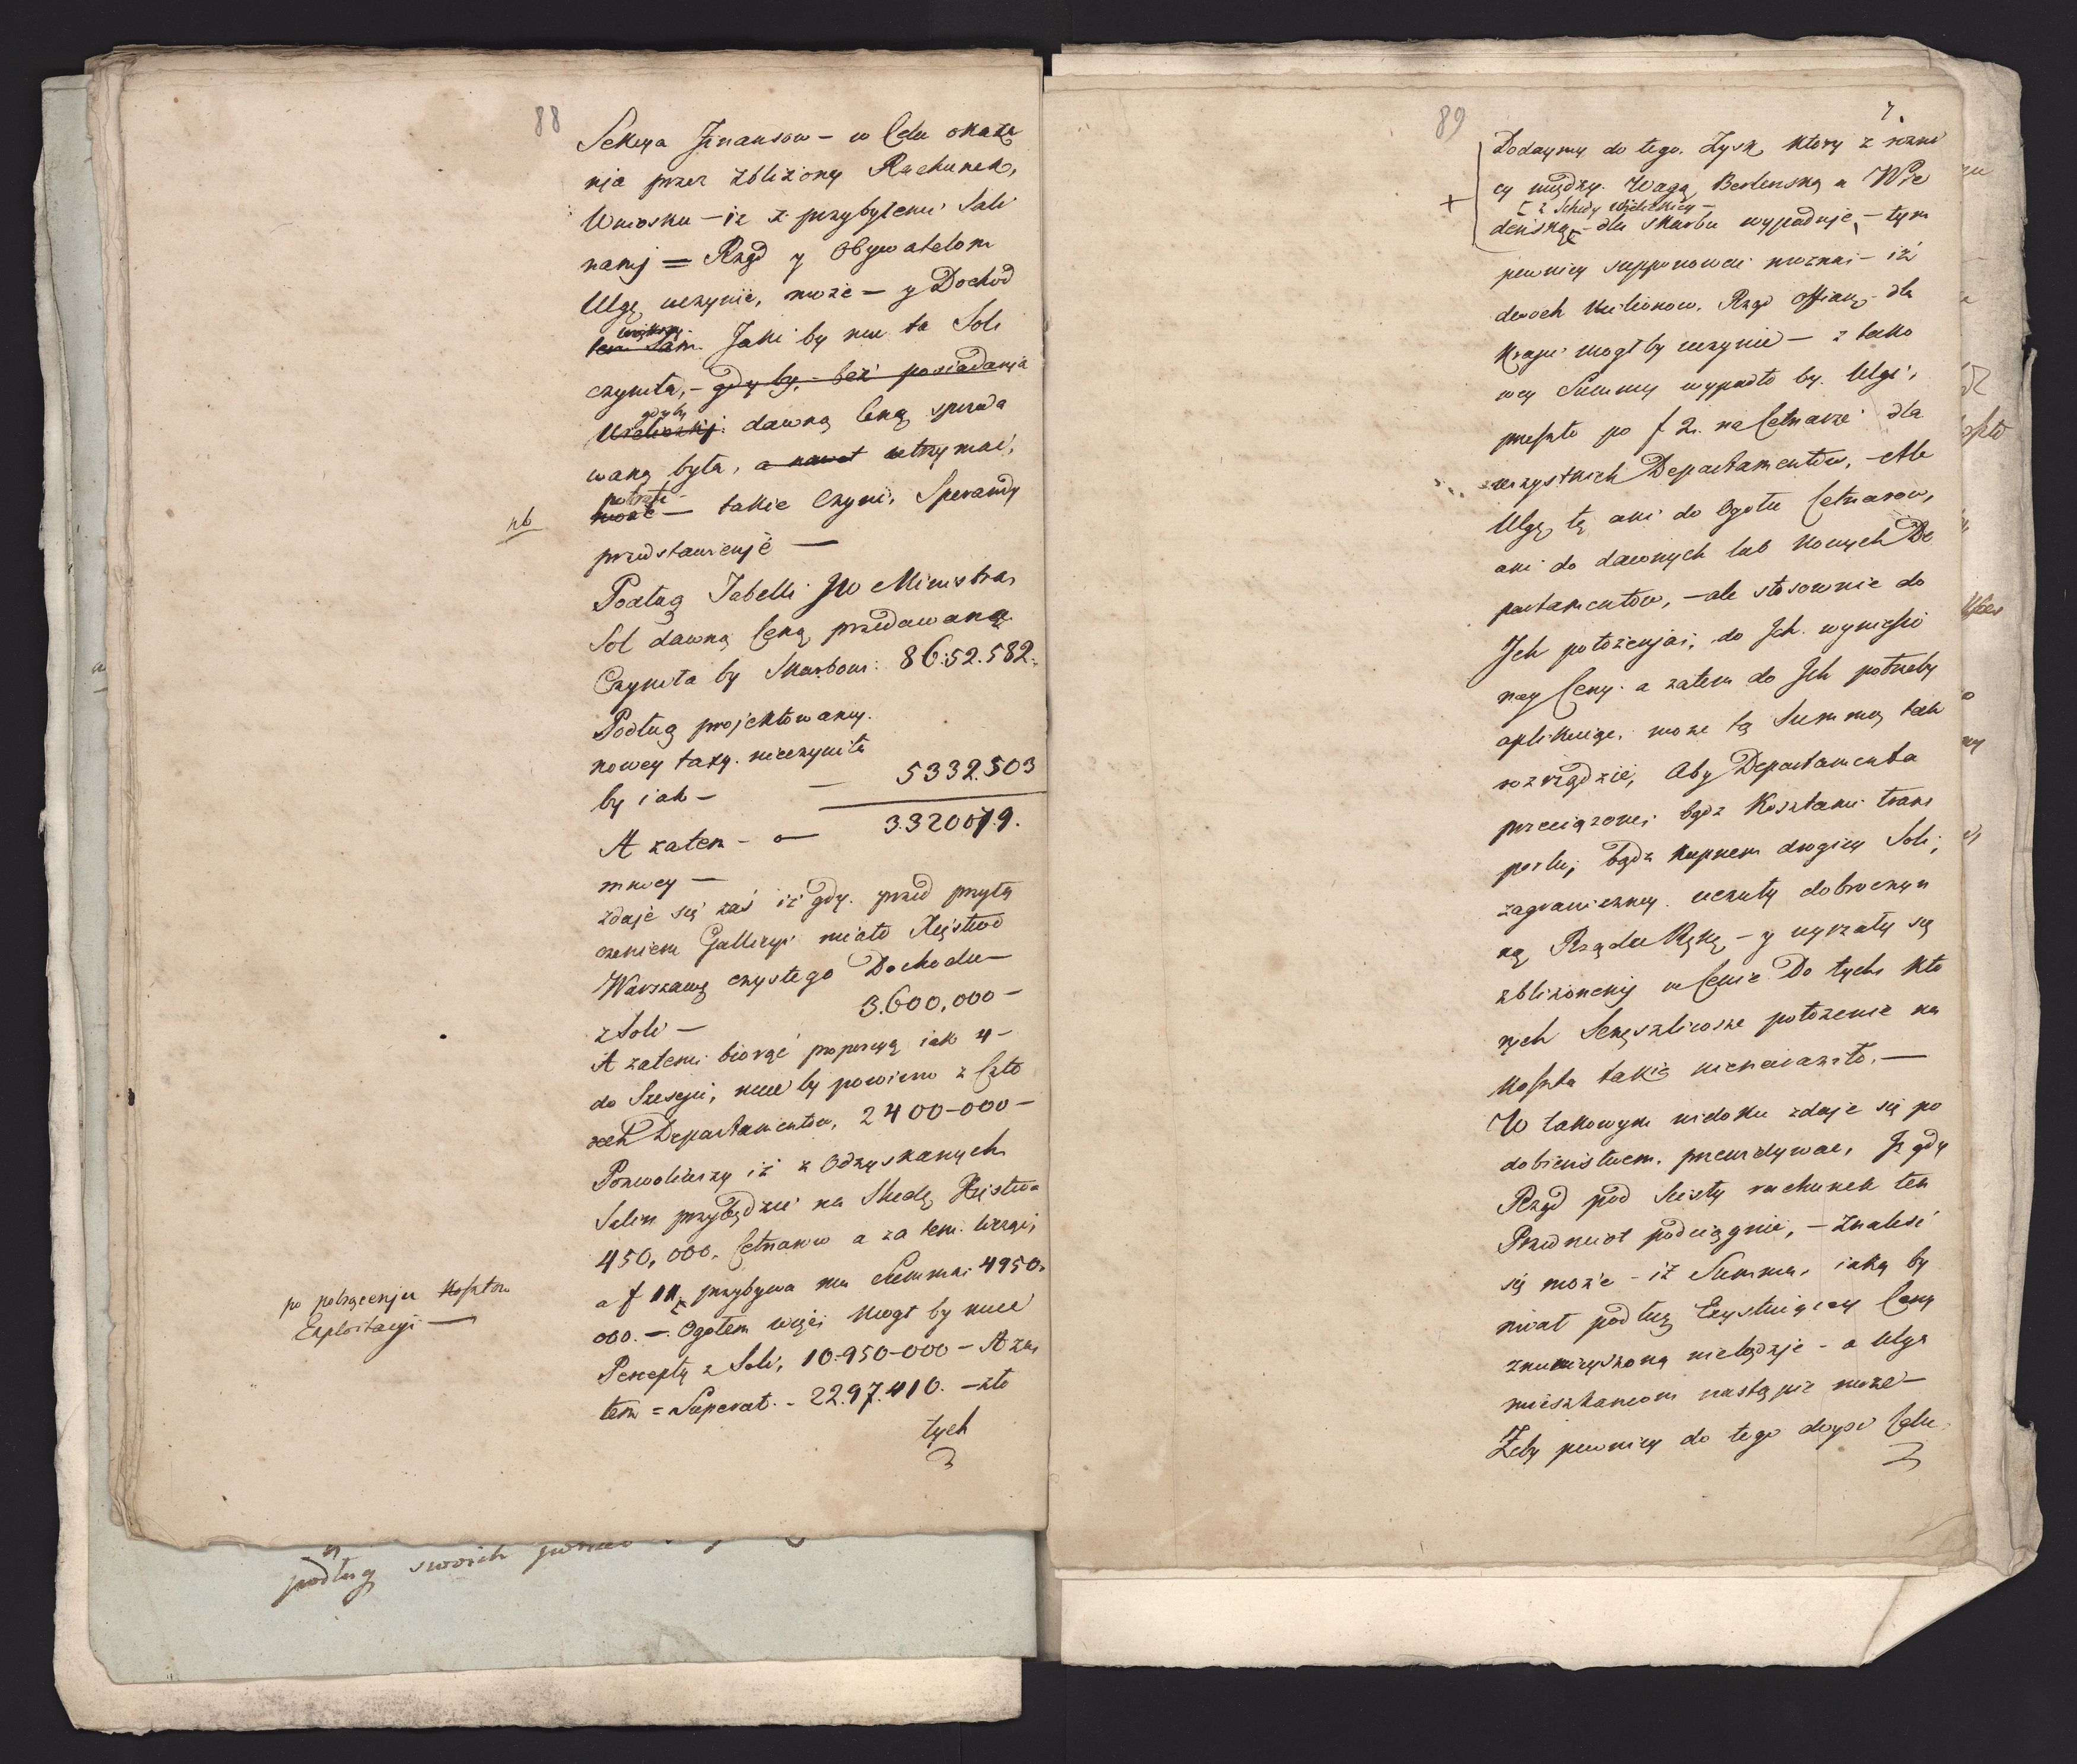 88
Sekcya Finansow – w Celu okaza
nia przez zbliżony Rachunek,
Wniosku – iż z przybyłemi Sali
namj = Rząd y Obywatelom
Ulgę uczynić, może – y Dochod
większy
ten Sam. Jaki by mu ta Sol
czyniła, – gdy by, – bez posiadanja
gdyby
Wieliczkj. dawną Ceną sprzeda
waną była, a nawet utrzymać,
potrafi –
może – takie Czyni, Sperandy
nb
przedstawienje —
Podług Tabelli JW Ministra,
Sol dawną Ceną przedawana
Czyniła by Skarbowi: 86.52.582.
Podług projektowaney.
nowey taxy. nieczyniła
by iak – — 5332.503
A zatem – — 3.320079.
mniey —
zdaje się zaś iż gdy. przed przyłą
czeniem Gallicyi miało Xięstwo
Warszawę czystego Dochodu –
z Soli – 3.600,000 –
A zatem biorąc proporcyą iak 4 –
do Sześciu, mieć by powinno z Czte
rech Departamentow, 2400-000 –
Pozwoliwszy iż z Odzyskanych
Salin przybędzie na Shedę Xięstwa
450,000. Cetnarow a za tem. licząc,
a f 11, przybywa mu Summa: 4950.
po potrąceniu Kosztow
Exploitacyi —
000. –. Ogołem więc Mogł by mieć
Perceptę z Soli, 10-950-000 – A za
tem = Superat. – 2297.410. – zło
tych

89
7.
Dodaymy do tego. Zysk ktory z rożni
cy między. Wagą Berlenską a Wie
+
z Schedy Wielickiey –
deńską – dla Skarbu wypaduje, – tym
pewniey supponować można – iż
dwoch Milionow. Rząd offiarę – dla
Kraju mogł by uczynić – z tako
wey Summy wypadło by. Ulgi,
preszło po f 2. na Cetnarze dla
wszystkich Departamentow, – Ale
Ulgę tę ani do Ogołu Cetnarow,
ani do dawnych lub Nowych De
partamentow, – ale stosownie do
Ich położenja, do Ich. wyniesio
ney Ceny. a zatem do Ich potrzeby
aplikuiąc, może tę Summę tak
rozrządzić, Aby Departamenta
przeciązone, bądz Kosztami trans
portu, bądz kupnem drogiey Soli,
zagraniczney. uczuły dobroczyn
ną Rządu Rękę – y uyrzały się
zblizonemj w Cenie Do tych kto
rych Sczęszliwsze położenie na
koszta takie nienarazało. —
W takowym widoku zdaje się po
dobieństwem. przewidywać, Iż gdy
Rząd pod Scisły rachunek ten
Przedmiot podciągnie, – Znaleść
się może – iż Summa, iaką by
miał podług Exystuiącey Ceny
zmnieyszoną niebędzie – a Ulga
mieszkancom nastąpić może –
Żeby pewniey do tego doyść Celu
podług swoich